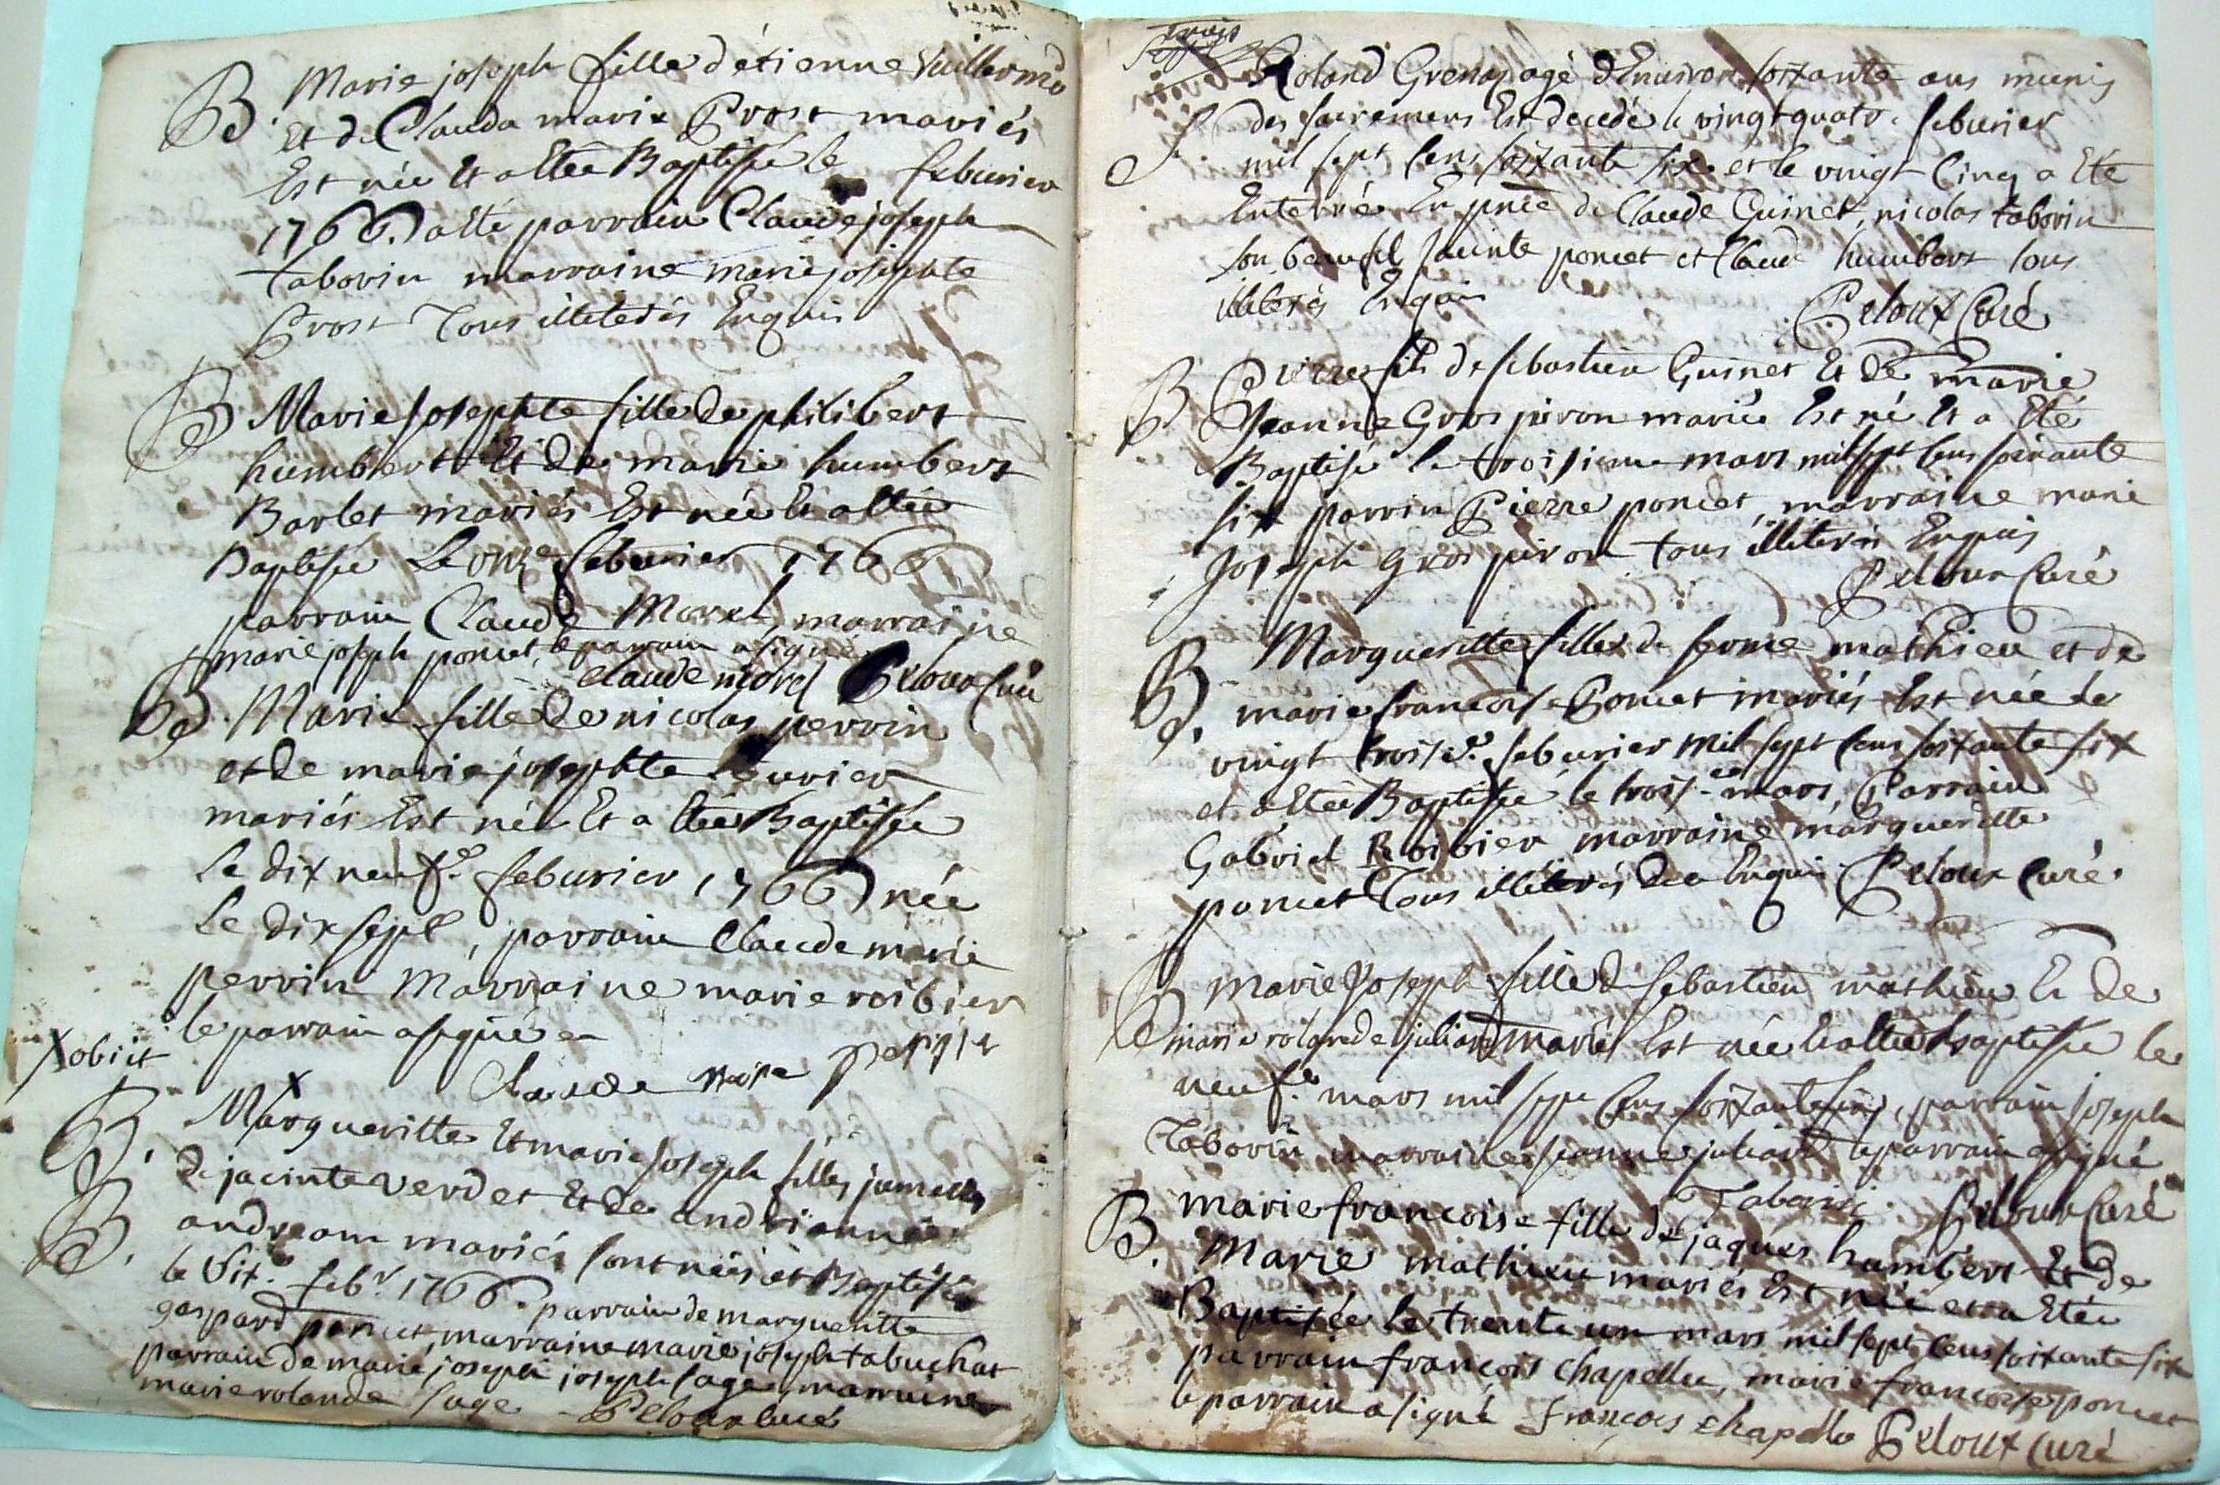 B. Marie joseph fille d'étienne Vuillermo
et de Clauda marie Prost mariés
Est née Et a Etée Baptisée le feburier
1766. a Eté parrain Claude joseph
tabovin marraine marie josephte
Prost Tous illiterés Enquis
B Marie Josephte fille de philibert
humbert Et de marie humbert
Barlet mariés Est née Et a Etée
Baptisée Le onze feburier 1766
parrain Claude Morel, marraine
marie joseph poncet, le parrain a signé
claude morel Peloux Curé
B. Marie fille de nicolas perrin
et de marie josephte
mariés Est née Et a Etée Baptisée
le dix neuf.e feburier 1766 née
le dix sept, parrain Claude marie
perrin Marraine marie roibier
le parrain a signé
X obiit
Claude marie perrin
B. Margueritte et marie Joseph filles jumelles
de jacinte verdet Et de andrianne
B. andream mariés sont nées et Baptisées
le dix.e feb.r 1766. parrain de margueritte
gaspard poncet, marraine marie joseph tabuchat
parrain de marie joseph joseph sage, marraine
marie rolande sage Peloux curé
trois
Roland Grenay agé d'Environ soixante ans munis
des sacremens Est decedé le vingt quatr.e feburier
mil sept cens soixante six et le vingt Cinq a Eté
Enterré En pnce de Claude Guinet, nicolas tabovin
son beaufil Jacinte poncet et Claude humbert tous
illiterés Enquis
Peloux Curé
B Pierre fils de sebastien Guinet Et de marie
Jeanne Gros piron mariés Est né Et a Eté
Baptisé le troisieme mars mil sept cens soixante
six parrin Pierre poncet, marraine marie
Joseph gros piron tous illiterés Enquis
Peloux Curé
B. Margueritte fille de ferme mathieu et de
marie francoise Poncet mariés Est née le
vingt trois.e feburier mil sept cens soixante six
et a Etée Baptisée le trois.e mars, Parrain
Gabriel Roibier marraine margueritte
poncet Tous illiterés Enquis Peloux Curé.
B marie Joseph fille de sebastien mathieu Et de
marie rolande juliard mariés Est née Et a Etée baptisée le
neuf.e mars mil sept cens soixante six, parrain joseph
Tabovin marraine jeanne juliard le parrain a signé
Tabovin Peloux Curé
B. marie francoise fille de jaques humbert Et de
Marie mathieu mariés Est née et a Etée
Baptisée le trente un mars mil sept cens soixante six
parrain francois Chapelle, marie francoise poncet
le parrain a signé françois chapelle Peloux Curé